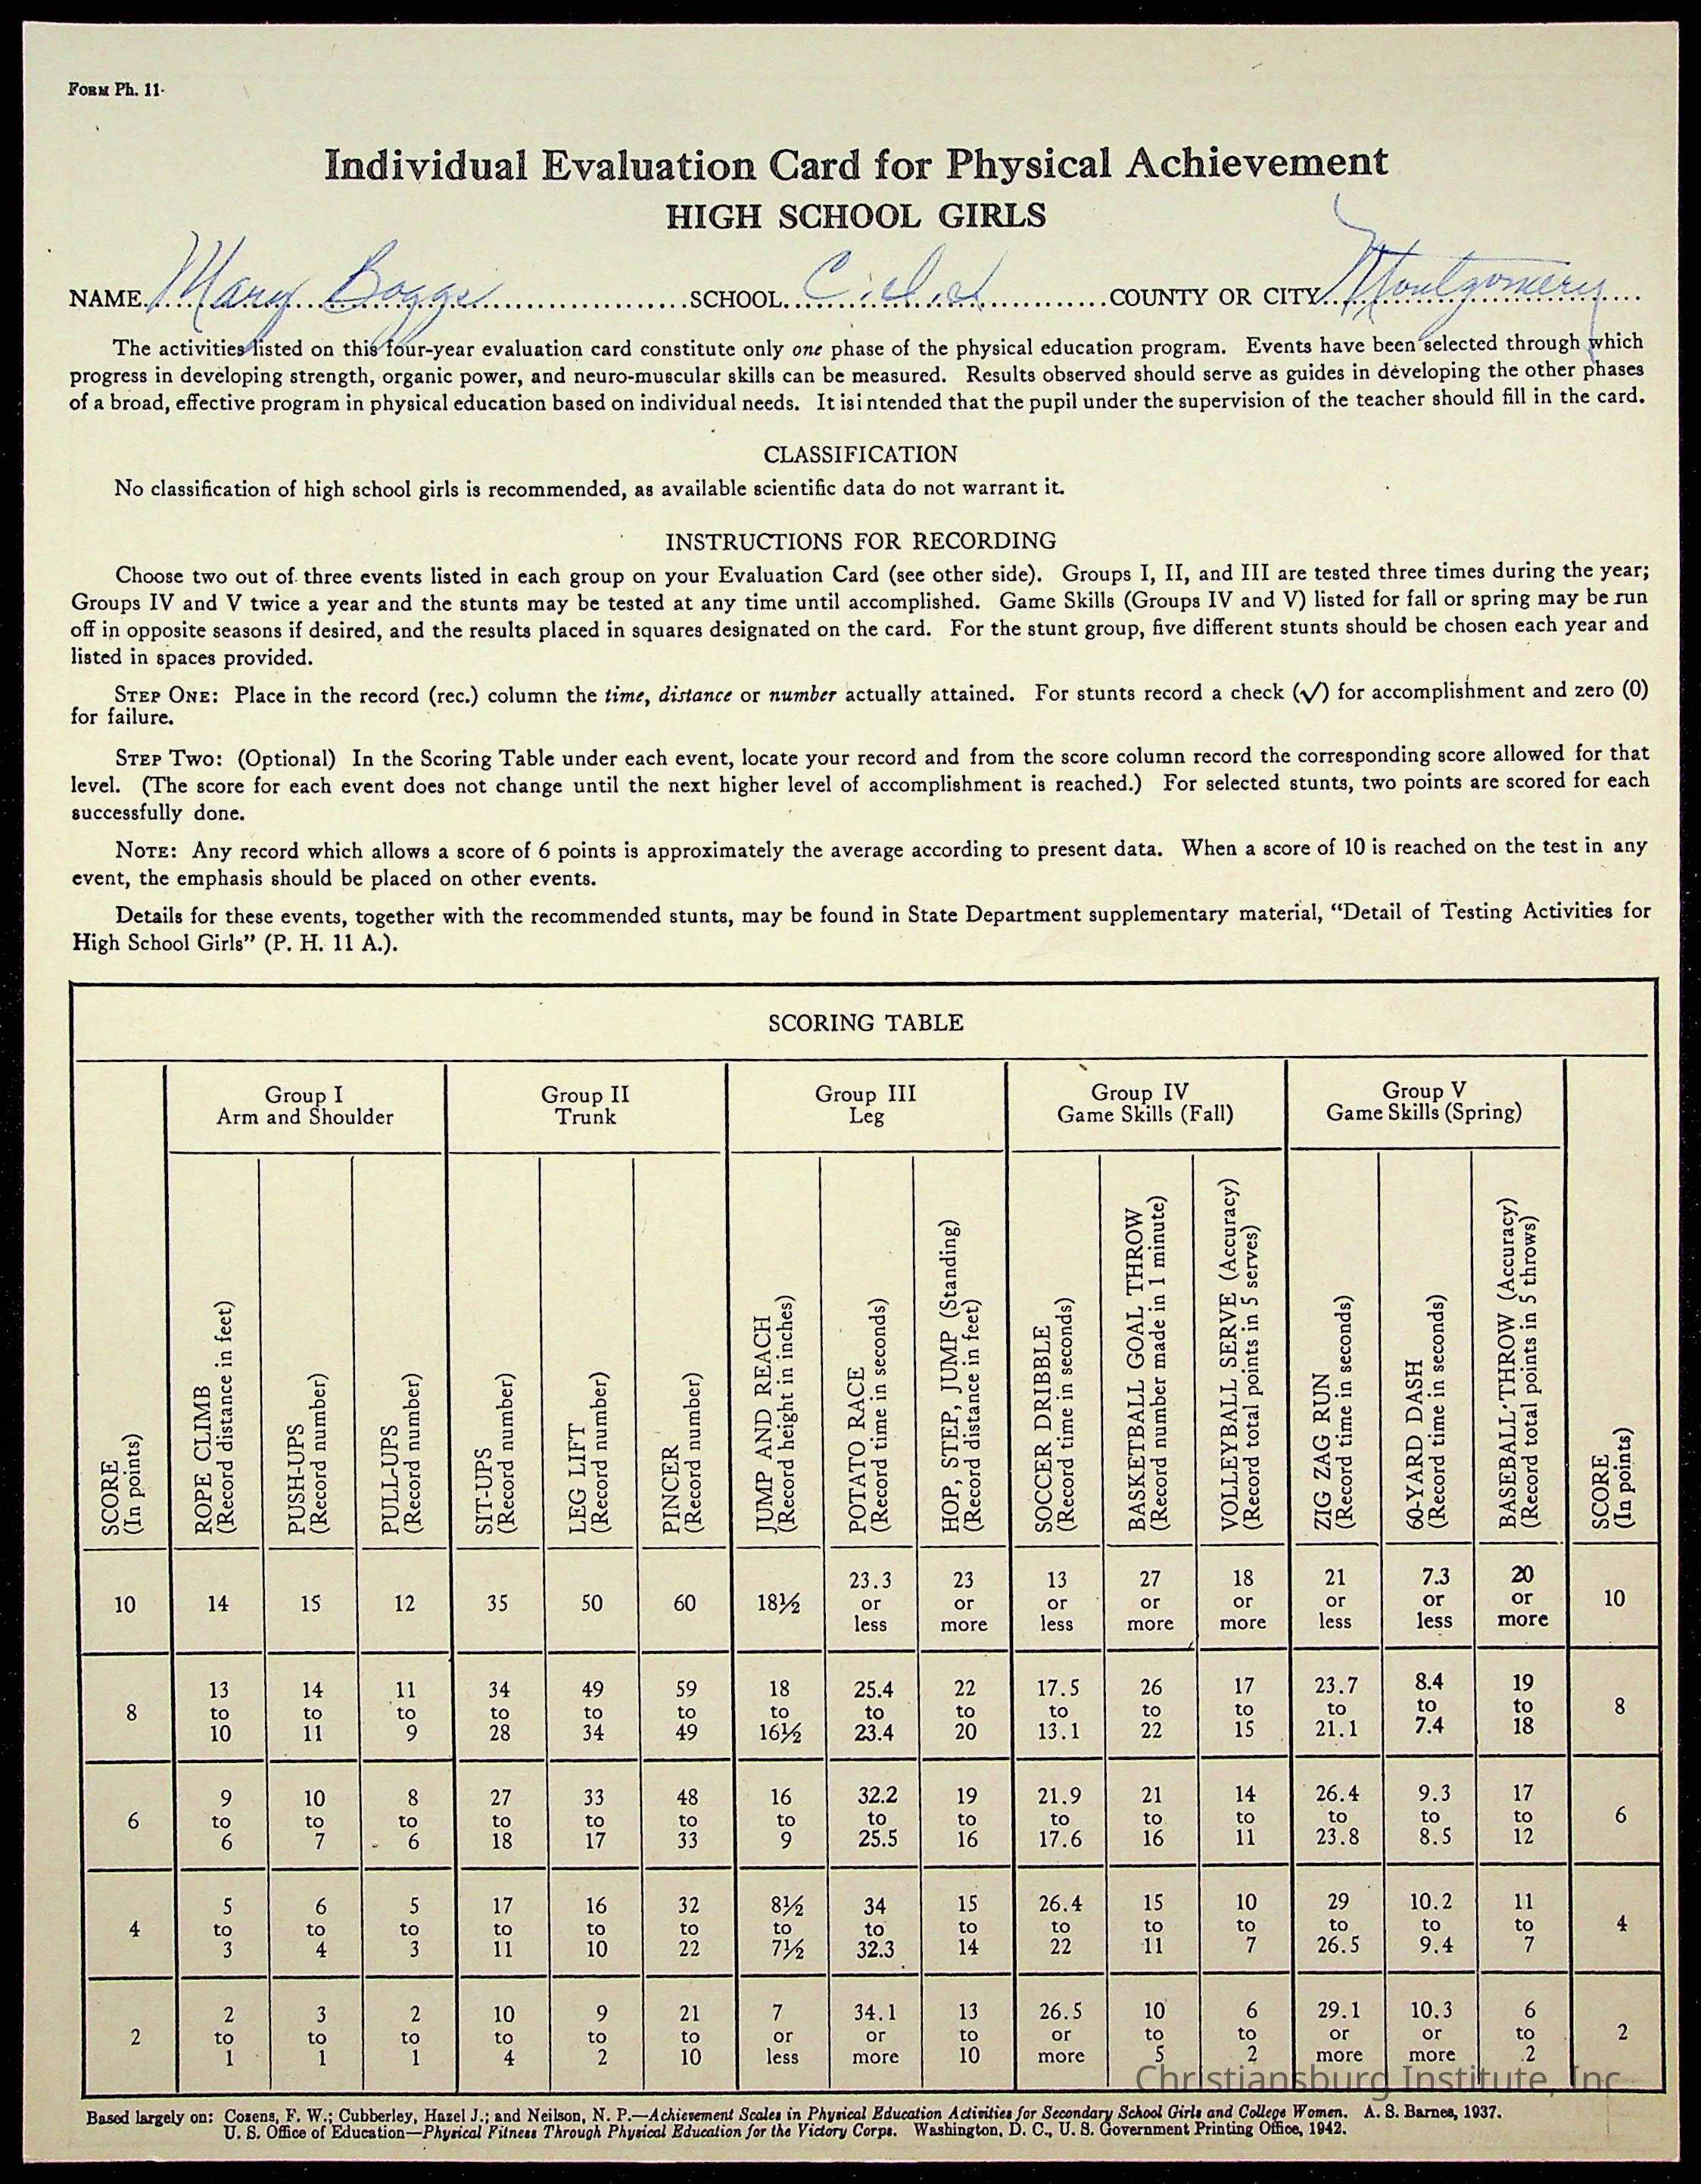 FORM Ph. 11
Individual Evaluation Card for Physical Achievement
HIGH SCHOOL GIRLS
NAME Mary Boggs SCHOOL COUNTY OR CITY Montgomery
The activities listed on this four-year evaluation card constitute only one phase of the physical education program. Events have been selected through which
progress in developing strength, organic power, and neuro-muscular skills can be measured. Results observed should serve as guides in developing the other phases
of a broad, effective program in physical education based on individual needs. It isi ntended that the pupil under the supervision of the teacher should fill in the card.
CLASSIFICATION
No classification of high school girls is recommended, as available scientific data do not warrant it.
INSTRUCTIONS FOR RECORDING
Choose two out of three events listed in each group on your Evaluation Card (see other side). Groups I, II, and III are tested three times during the year;
Groups IV and V twice a year and the stunts may be tested at any time until accomplished. Game Skills (Groups IV and V) listed for fall or spring may be run
off in opposite seasons if desired, and the results placed in squares designated on the card. For the stunt group, five different stunts should be chosen each year and
listed in spaces provided.
STEP ONE: Place in the record (rec.) column the time, distance or number actually attained. For stunts record a check (√) for accomplishment and zero (0)
for failure.
STEP TWO: (Optional) In the Scoring Table under each event, locate your record and from the score column record the corresponding score allowed for that
level. (The score for each event does not change until the next higher level of accomplishment is reached.) For selected stunts, two points are scored for each
successfully done.
NOTE: Any record which allows a score of 6 points is approximately the average according to present data. When a score of 10 is reached on the test in any
event, the emphasis should be placed on other events.
Details for these events, together with the recommended stunts, may be found in State Department supplementary material, “Detail of Testing Activities for
High School Girls” (P. H. 11 A.).
SCORING TABLE
Group I Group II Group III Group IV Group V
Arm and Shoulder Trunk Leg Game Skills (Fall) Game Skills (Spring)
SCORE
(In points)
ROPE CLIMB
(Record distance in feet)
PUSH-UPS
(Record number)
PULL-UPS
(Record number)
SIT-UPS
(Record number)
LEG LIFT
(Record number)
PINCER
(Record number)
JUMP AND REACH
(Record height in inches)
POTATO RACE
(Record time in seconds)
HOP, STEP, JUMP (Standing)
(Record distance in feet)
SOCCER DRIBBLE
(Record time in seconds)
BASKETBALL GOAL THROW
(Record number made in 1 minute)
VOLLEYBALL SERVE (Accuracy)
(Record total points in 5 serves)
ZIG ZAG RUN
(Record time in seconds)
60-YARD DASH
(Record time in seconds)
BASEBALL THROW (Accuracy)
(Record total points in 5 throws)
SCORE
(In points)
23.3 23 13 27 18 21 7.3 20
10 14 15 12 35 50 60 18½ or or or or or or or or 10
less more less more more less less more
13 14 11 34 49 59 18 25.4 22 17.5 26 17 23.7 8.4 19
8 to to to to to to to to to to to to to to to 8
10 11 9 28 34 49 16½ 23.4 20 13.1 22 15 21.1 7.4 18
9 10 8 27 33 48 16 32.2 19 21.9 21 14 26.4 9.3 17
6 to to to to to to to to to to to to to to to 6
6 7 6 18 17 33 9 25.5 16 17.6 16 11 23.8 8.5 12
5 6 5 17 16 32 8½ 34 15 26.4 15 10 29 10.2 11
4 to to to to to to to to to to to to to to to 4
3 4 3 11 10 22 7½ 32.3 14 22 11 7 26.5 9.4 7
2 3 2 10 9 21 7 34.1 13 26.5 10 6 29.1 10.3 6
2 to to to to to to or or to or to to or or to 2
1 1 1 4 2 10 less more 10 more 5 2 more more 2
Christiansburg Institute, Inc
Based largely on: Cozens, F. W.; Cubberley, Hazel J.; and Neilson, N. P.—Achievement Scales in Physical Education Activities for Secondary School Girls and College Women. A. S. Barnes, 1937.
U. S. Office of Education—Physical Fitness Through Physical Education for the Victory Corps. Washington, D. C., U. S. Government Printing Office, 1942.